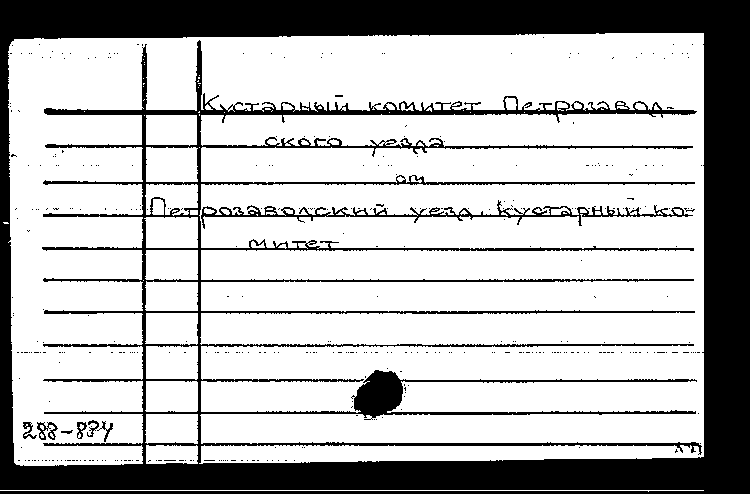 Кустарный комитет Петрозавод-
ского уезда
от
Петрозаводский уезд. Кустарный ко-
митет
288-884